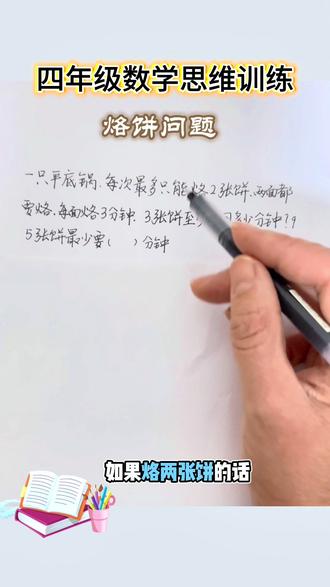 四年级数学思维训练
烙饼问题
一只平底锅,每次最多只能烙2张饼,两面都
要烙,每面烙3分钟,3张饼至少分钟?
5张饼最少要( )分钟
如果烙两张饼的话